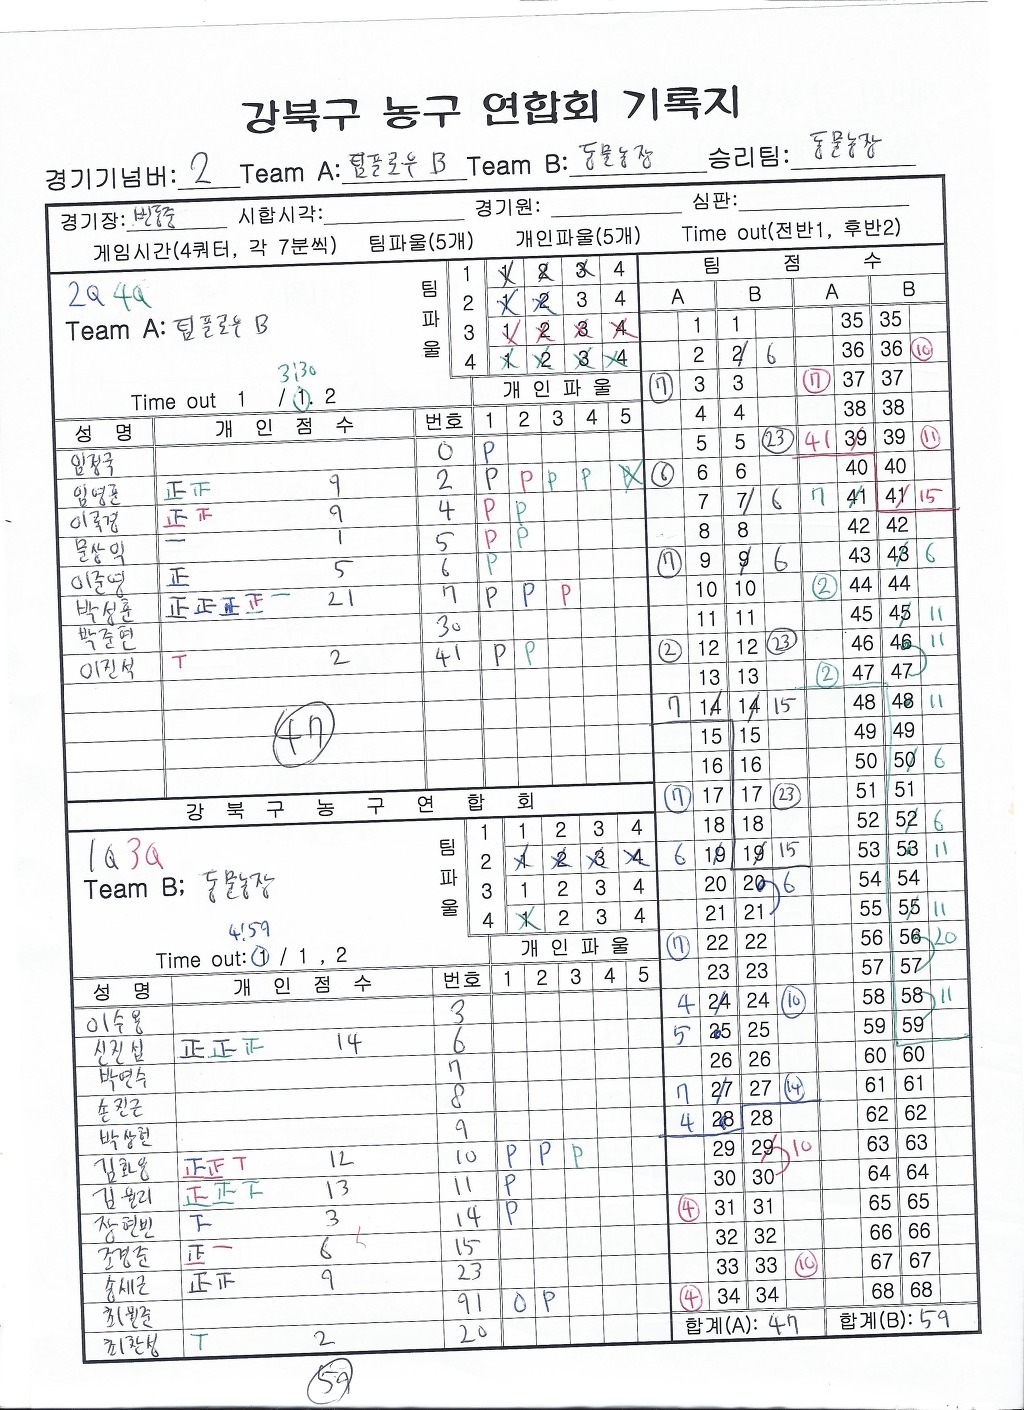 강북구 농구 연합회 기록지
경기기넘버: 2 Team A: 팀플로우 B Team B: 동물농장 승리팀: 동물농장
경기장: 번동중 시합시각: 경기원: 심판:
게임시간(4쿼터, 각 7분씩) 팀파울(5개) 개인파울(5개) Time out(전반1, 후반2)
2Q 4Q
Team A: 팀플로우 B
팀파울
1 1 2 3 4
2 1 2 3 4
3 1 2 3 4
4 1 2 3 4
3:30
Time out 1 / 1. 2
개인파울
성 명 개 인 점 수 번호 1 2 3 4 5
임정국 0 P
임영훈 正 9 2 P P P P
이룩겸 正 9 4 P P
문상익 一 1 5 P P
이준영 正 5 6 P
박성훈 正 正 正 正 一 21 7 P P P
박준현 30
이진석 T 2 41 P P
47
강 북 구 농 구 연 합 회
1Q 3Q
Team B; 동물농장
팀파울
1 1 2 3 4
2 1 2 3 4
3 1 2 3 4
4 1 2 3 4
4:59
Time out: 1 / 1 , 2
개 인 파 울
성 명 개 인 점 수 번호 1 2 3 4 5
이수용 3
신진섭 正 正 14 6
박연수 7
손진근 8
박상헌 9
김화용 正 正 T 12 10 P P P
김윤리 正 正 13 11 P
장현빈 3 14 P
조경준 正 一 6 15
송세근 正 9 23
최원준 91 P
최찬성 T 2 20
59
팀 점 수
A B A B
1 1 35 35
2 2 6 36 36 10
7 3 3 7 37 37
4 4 38 38
5 5 23 41 39 39 11
6 6 6 40 40
7 7 6 7 41 41 15
8 8 42 42
7 9 9 6 43 43 6
10 10 2 44 44
11 11 45 45 11
2 12 12 23 46 46 11
13 13 2 47 47
7 14 14 15 48 48 11
15 15 49 49
16 16 50 50 6
7 17 17 23 51 51
18 18 52 52 6
6 19 19 15 53 53 11
20 20 6 54 54
21 21 55 55 11
7 22 22 56 56 20
23 23 57 57
4 24 24 10 58 58 11
5 25 25 59 59
26 26 60 60
7 27 27 14 61 61
4 28 28 62 62
29 29 10 63 63
30 30 64 64
4 31 31 65 65
32 32 66 66
33 33 10 67 67
4 34 34 68 68
합계(A): 47 합계(B): 59